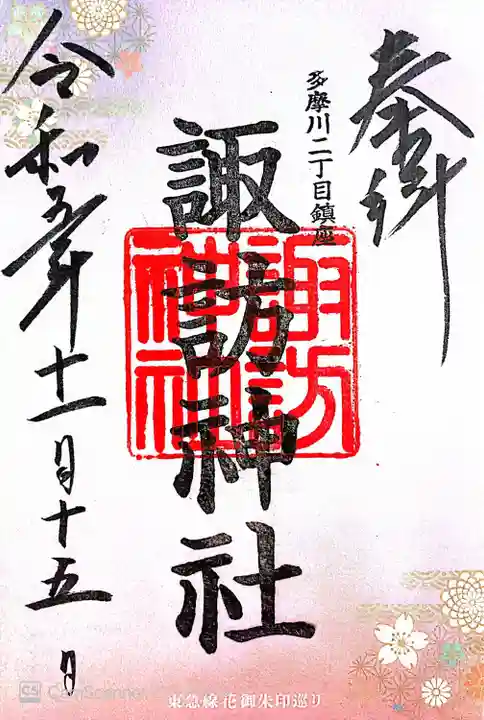 奉拝
多摩川二丁目鎮座
諏訪神社
諏訪
神社
令和五年十一月十五日
東急線花御朱印巡り
CS CamScanner